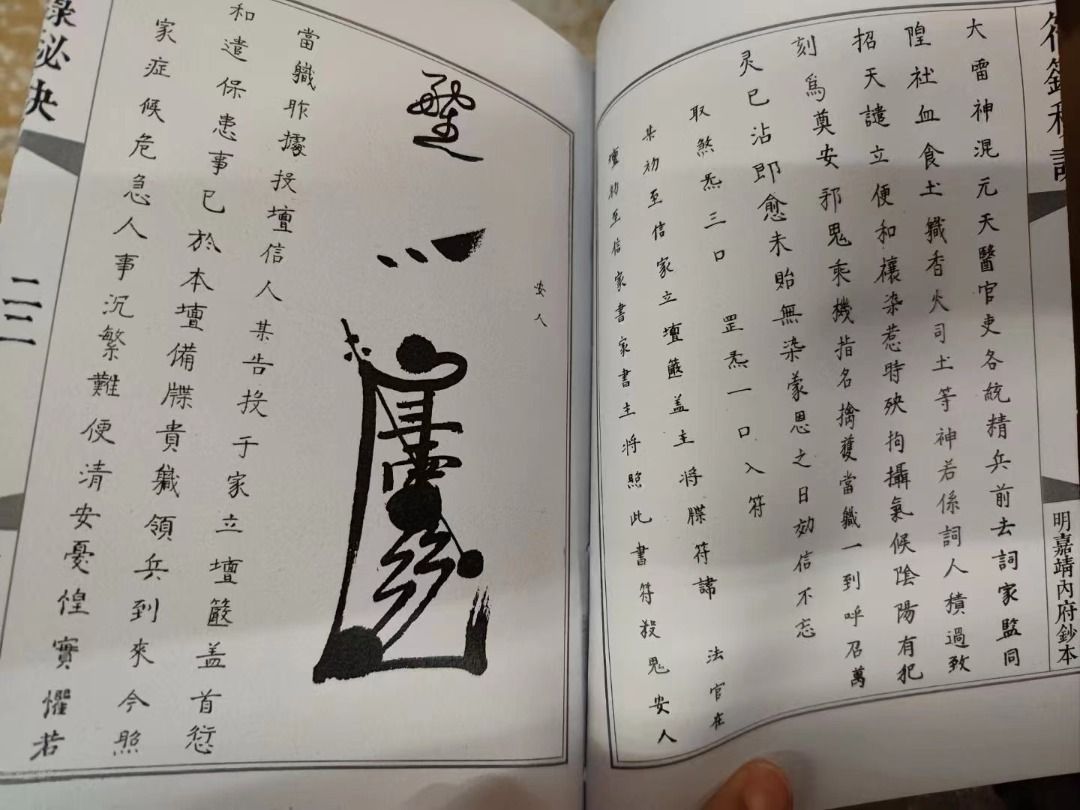 符籙秘訣
明嘉靖內府鈔本
大雷神混元天醫官吏各統精兵前去詞家監同
隍社血食土軄香火司土等神若係詞人積過致
招天譴立便和禳染惹時殃拘攝氣候陰陽有犯
刻為奠安邪鬼乘機指名擒獲當軄一到呼召萬
灵已沾即愈未貽無染蒙恩之日効信不忘
取煞炁三口　罡炁一口入符
某劾至信家立壇𥴦盖主將牒符諱　法官在
壇劾至信家書家書主將照此書符殺鬼安人
安人
當軄昨據投壇信人某告投于家立壇𥴦盖首愆
和遣保患事已於本壇備牒貴軄領兵到來今照
家症候危急人事沉繁難便清安憂惶實懼若
籙秘訣
二二